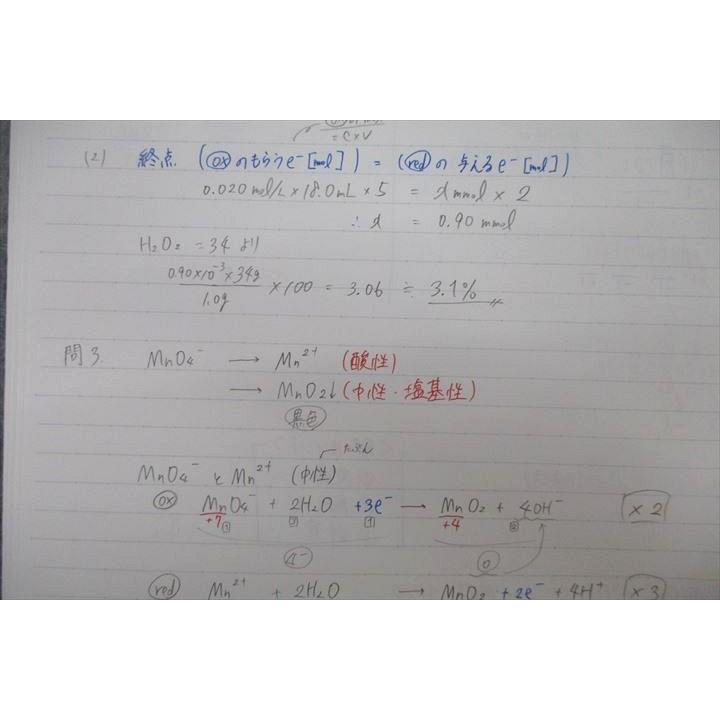 = C×V
(2) 終点 (oxのもらうe⁻[mol]) = (redの与えるe⁻[mol])
0.020 mol/L × 18.0 mL × 5 = x mmol × 2
∴ x = 0.90 mmol
H₂O₂ = 34 より
0.90×10⁻³×34g
1.0g
×100 = 3.06 ≒ 3.1%
問3. MnO₄⁻ → Mn²⁺ (酸性)
→ MnO₂↓ (中性・塩基性)
黒色
たぶん
MnO₄⁻ と Mn²⁺ (中性)
ox MnO₄⁻ + 2H₂O +3e⁻ → MnO₂ + 4OH⁻ ×2
+7 ① ② ① +4 ②
4⁻ 0
red Mn²⁺ + 2H₂O → MnO₂ +2e⁻ + 4H⁺ ×3